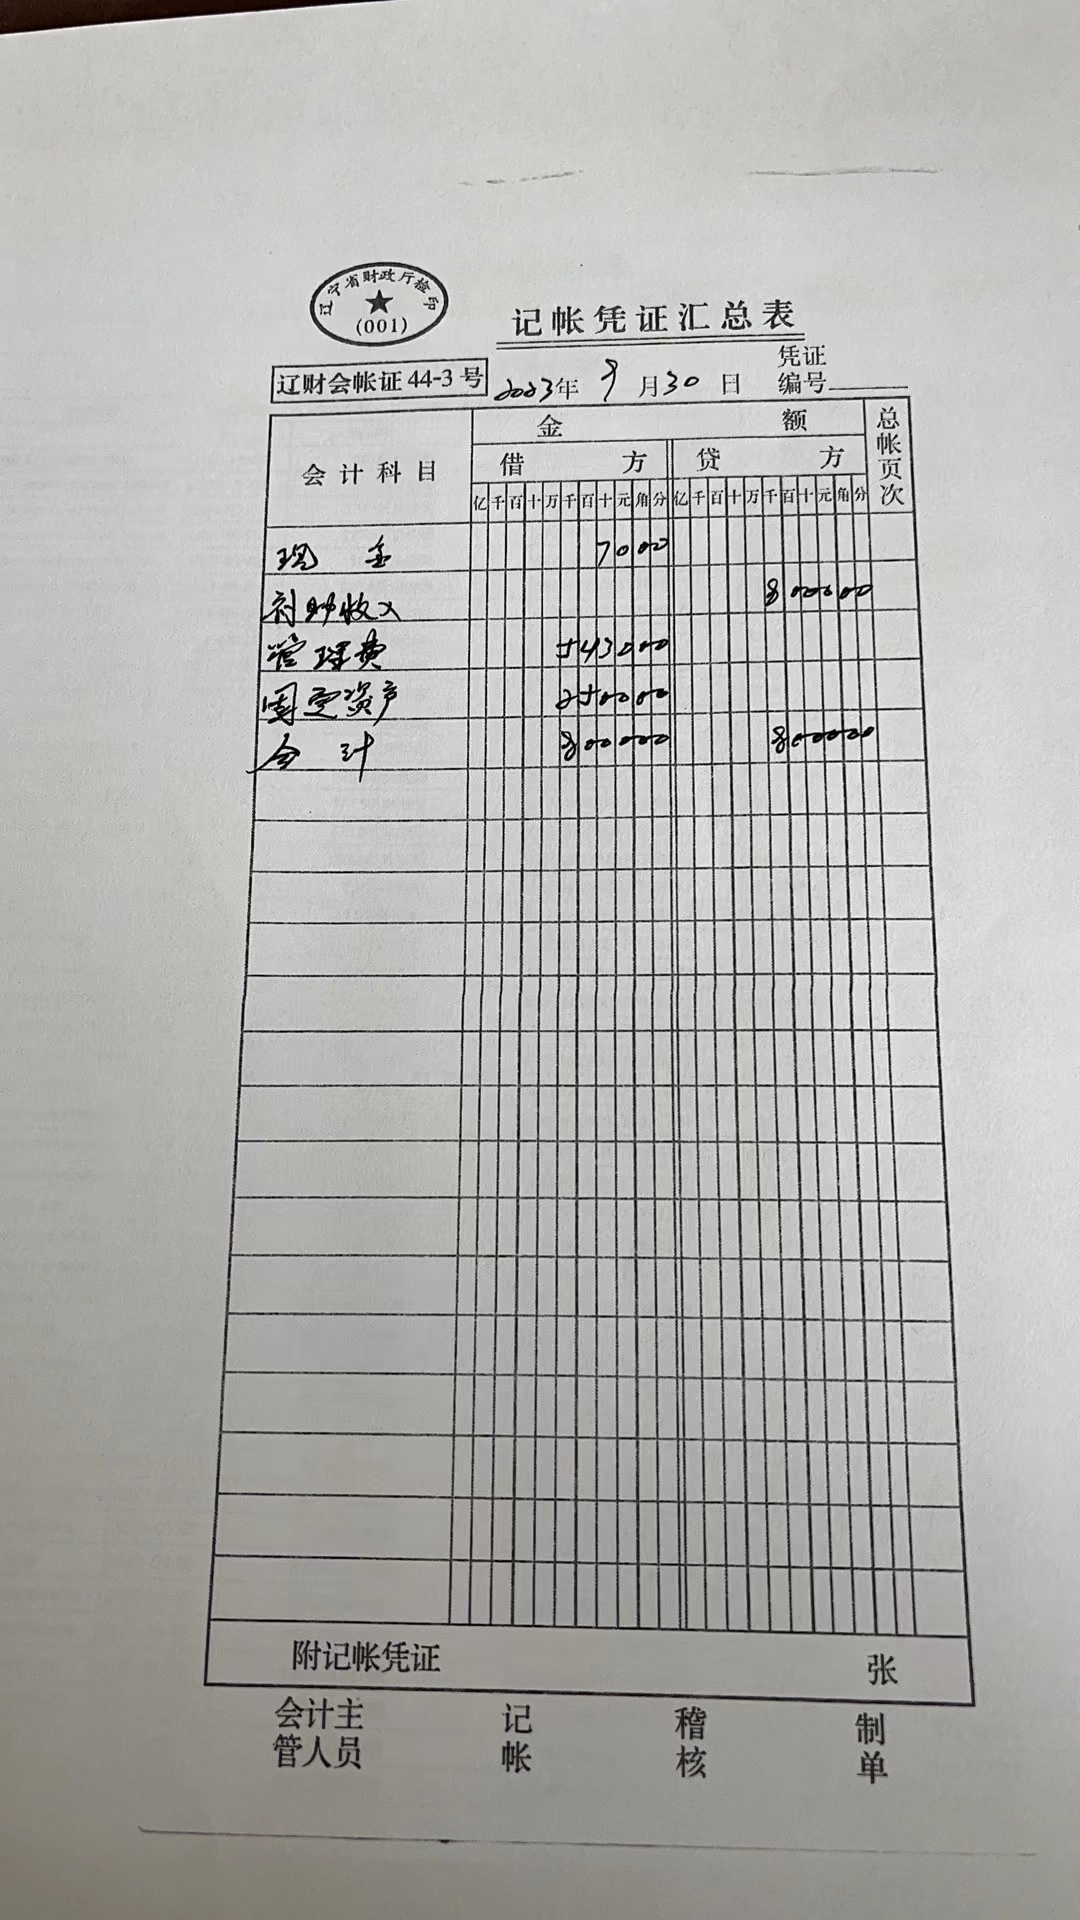 辽宁省财政厅检印
(001)
记帐凭证汇总表
辽财会帐证 44-3 号
2023年 9月30日
凭证编号
会计科目
金额
总帐页次
借方
贷方
亿千百十万千百十元角分
亿千百十万千百十元角分
现金 7000
补助收入 800000
管理费 543000
固定资产 250000
合计 800000 800000
附记帐凭证 张
会计主管人员 记帐 稽核 制单